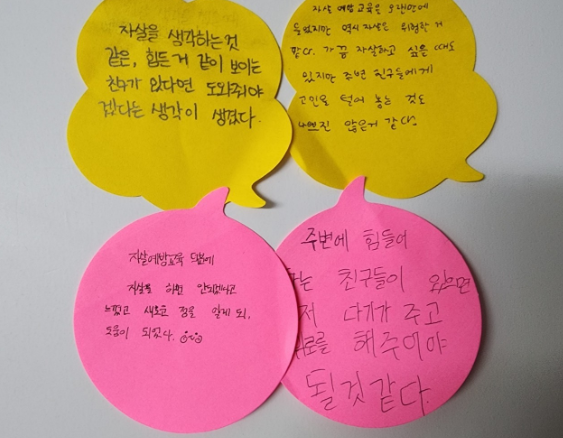 자살을 생각하는것
같은, 힘든거 같이 보이는
친구가 있다면 도와줘야
겠다는 생각이 생겼다.
자살 예방 교육을 오랜만에
들었지만 역시 자살은 위험한 거
같다. 가끔 자살하고 싶을 때도
있지만 주변 친구들에게
고민을 털어 놓는 것도
나쁘진 않은거 같다.
자살예방교육 덕분에
자살을 하면 안되겠다고
느꼈고 새로운 점을 알게 되,
도움이 되었다.
주변에 힘들어
는 친구들이 있으면
저 다가가 주고
로를 해주어야
될것 같다.